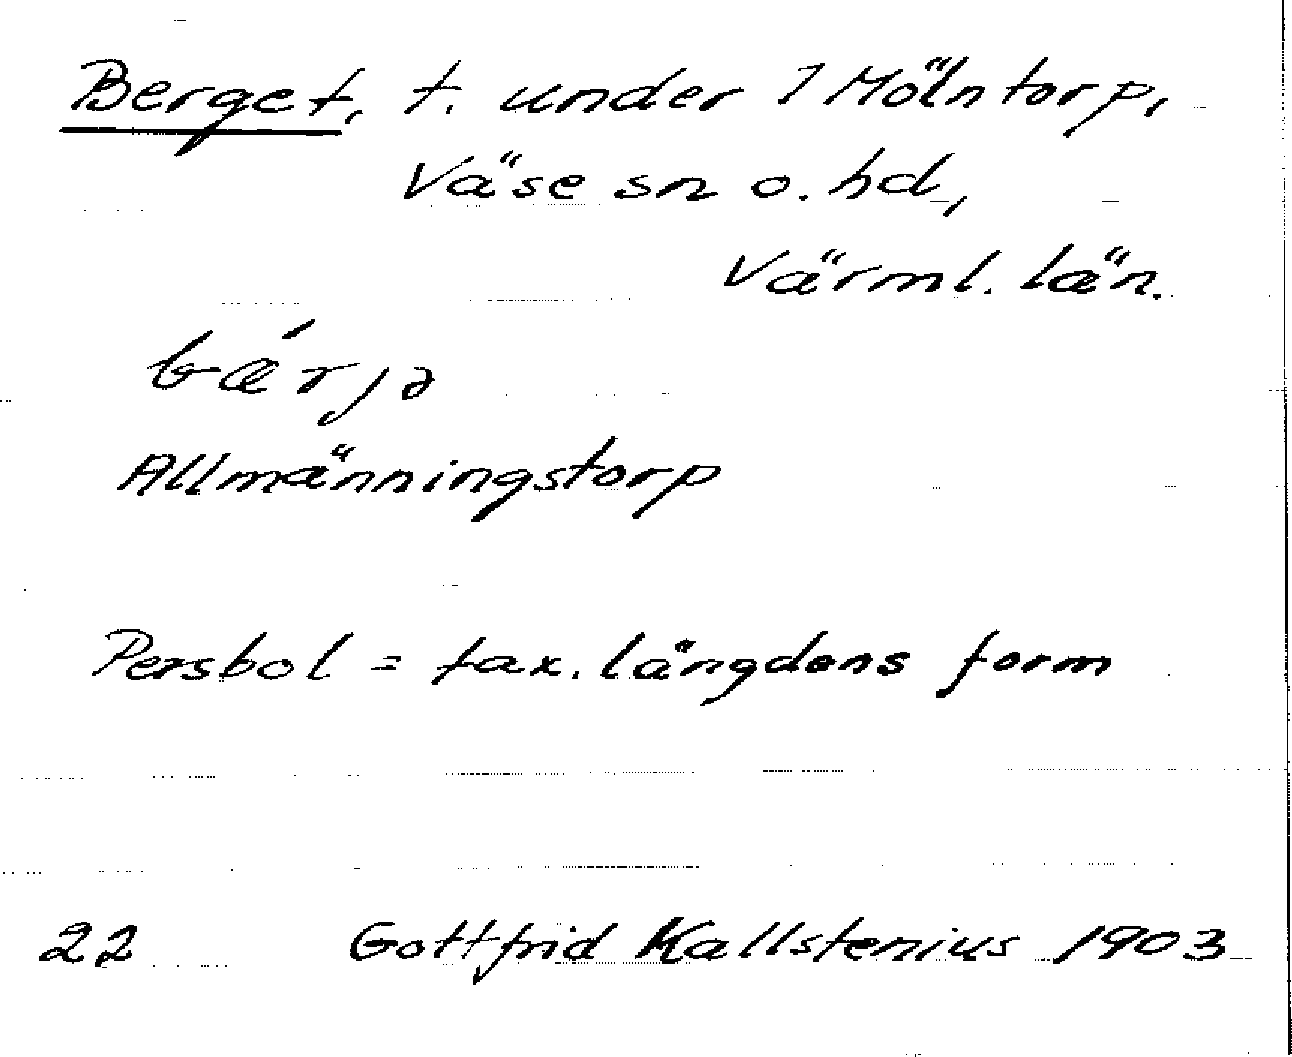 Berget, t. under 1 Mölntorp,
Väse sn o. hd,
Värml. län.
bǽrjə
Allmänningstorp
Persbol = tax. längdens form
22 Gottfrid Kallstenius 1903